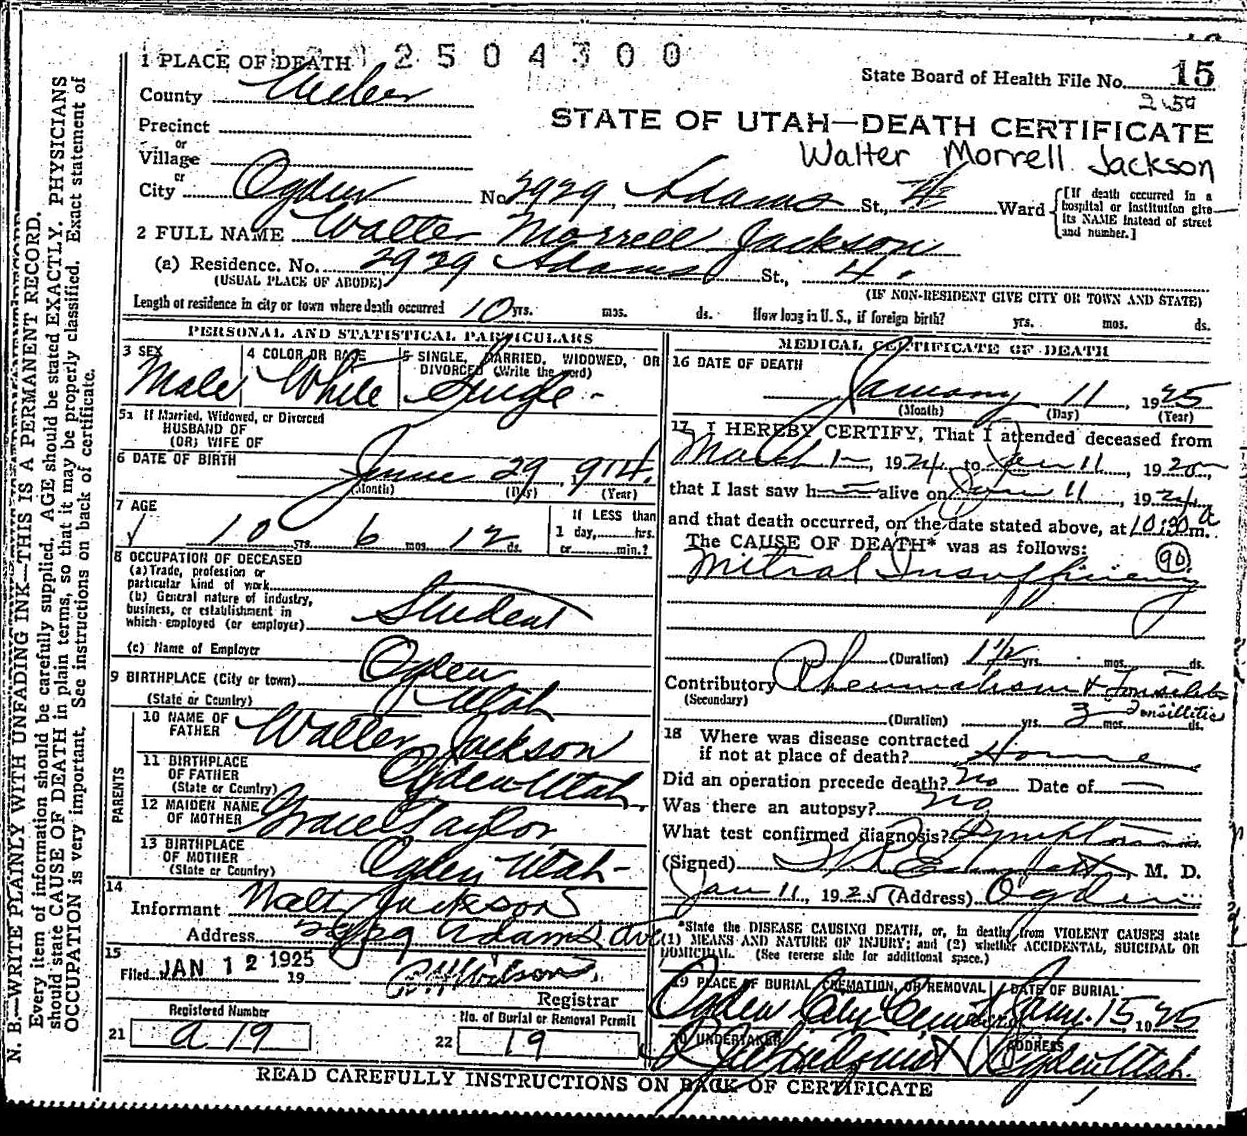 1 PLACE OF DEATH 2 5 0 4 3 0 0
State Board of Health File No. 15
County Weber
259
STATE OF UTAH—DEATH CERTIFICATE
Precinct
or
Walter Morrell Jackson
Village
or
City Ogden No. 2929 Adams St., 4 Ward [If death occurred in a hospital or institution give its NAME instead of street and number.]
2 FULL NAME Walter Morrell Jackson
(a) Residence. No. 2929 Adams St., 4.
(USUAL PLACE OF ABODE) (IF NON-RESIDENT GIVE CITY OR TOWN AND STATE)
Length of residence in city or town where death occurred 10 yrs. mos. ds. How long in U. S., if foreign birth? yrs. mos. ds.
PERSONAL AND STATISTICAL PARTICULARS
3 SEX 4 COLOR OR RACE 5 SINGLE, MARRIED, WIDOWED, OR DIVORCED (Write the word)
Male White Single
5a If Married, Widowed, or Divorced
HUSBAND OF
(OR) WIFE OF
6 DATE OF BIRTH
June 29, 1914.
(Month) (Day) (Year)
7 AGE
If LESS than
10 yrs. 6 mos. 12 ds.
1 day, hrs.
or min.?
8 OCCUPATION OF DECEASED
(a) Trade, profession or
particular kind of work
(b) General nature of industry,
business, or establishment in
which employed (or employer) Student
(c) Name of Employer
9 BIRTHPLACE (City or town) Ogden
(State or Country) Utah
PARENTS
10 NAME OF
FATHER Walter Jackson
11 BIRTHPLACE
OF FATHER Ogden Utah.
(State or Country)
12 MAIDEN NAME
OF MOTHER Grace Taylor
13 BIRTHPLACE
OF MOTHER Ogden Utah
(State or Country)
14
Informant Walter Jackson
Address 2929 Adams Ave
15
Filed JAN 12 1925 19 Wilson
Registrar
Registered Number
21 a 19
No. of Burial or Removal Permit
22 19
MEDICAL CERTIFICATE OF DEATH
16 DATE OF DEATH
January 11, 1925
(Month) (Day) (Year)
17 I HEREBY CERTIFY, That I attended deceased from
March 1, 1924, to Jan 11, 1925
that I last saw h alive on Jan 11, 1924
and that death occurred, on the date stated above, at 10:30 a m.
The CAUSE OF DEATH* was as follows: 90
Mitral Insufficiency
(Duration) 1 1/2 yrs. mos. ds.
Contributory Rheumatism & Tonsilitis
(Secondary) Tonsillitis
(Duration) yrs. 3 mos. ds.
18 Where was disease contracted
if not at place of death? Home
Did an operation precede death? no Date of —
Was there an autopsy? no
What test confirmed diagnosis? Symptoms
(Signed) M. D.
Jan 11, 1925 (Address) Ogden
*State the DISEASE CAUSING DEATH, or, in deaths from VIOLENT CAUSES state
(1) MEANS AND NATURE OF INJURY; and (2) whether ACCIDENTAL, SUICIDAL OR
HOMICIDAL. (See reverse side for additional space.)
19 PLACE OF BURIAL, CREMATION, OR REMOVAL DATE OF BURIAL
Ogden City Jany. 15, 1925
20 UNDERTAKER ADDRESS
Ogden, Utah.
READ CAREFULLY INSTRUCTIONS ON BACK OF CERTIFICATE
N. B.—WRITE PLAINLY WITH UNFADING INK—THIS IS A PERMANENT RECORD.
Every item of information should be carefully supplied. AGE should be stated EXACTLY. PHYSICIANS
should state CAUSE OF DEATH in plain terms, so that it may be properly classified. Exact statement of
OCCUPATION is very important. See instructions on back of certificate.